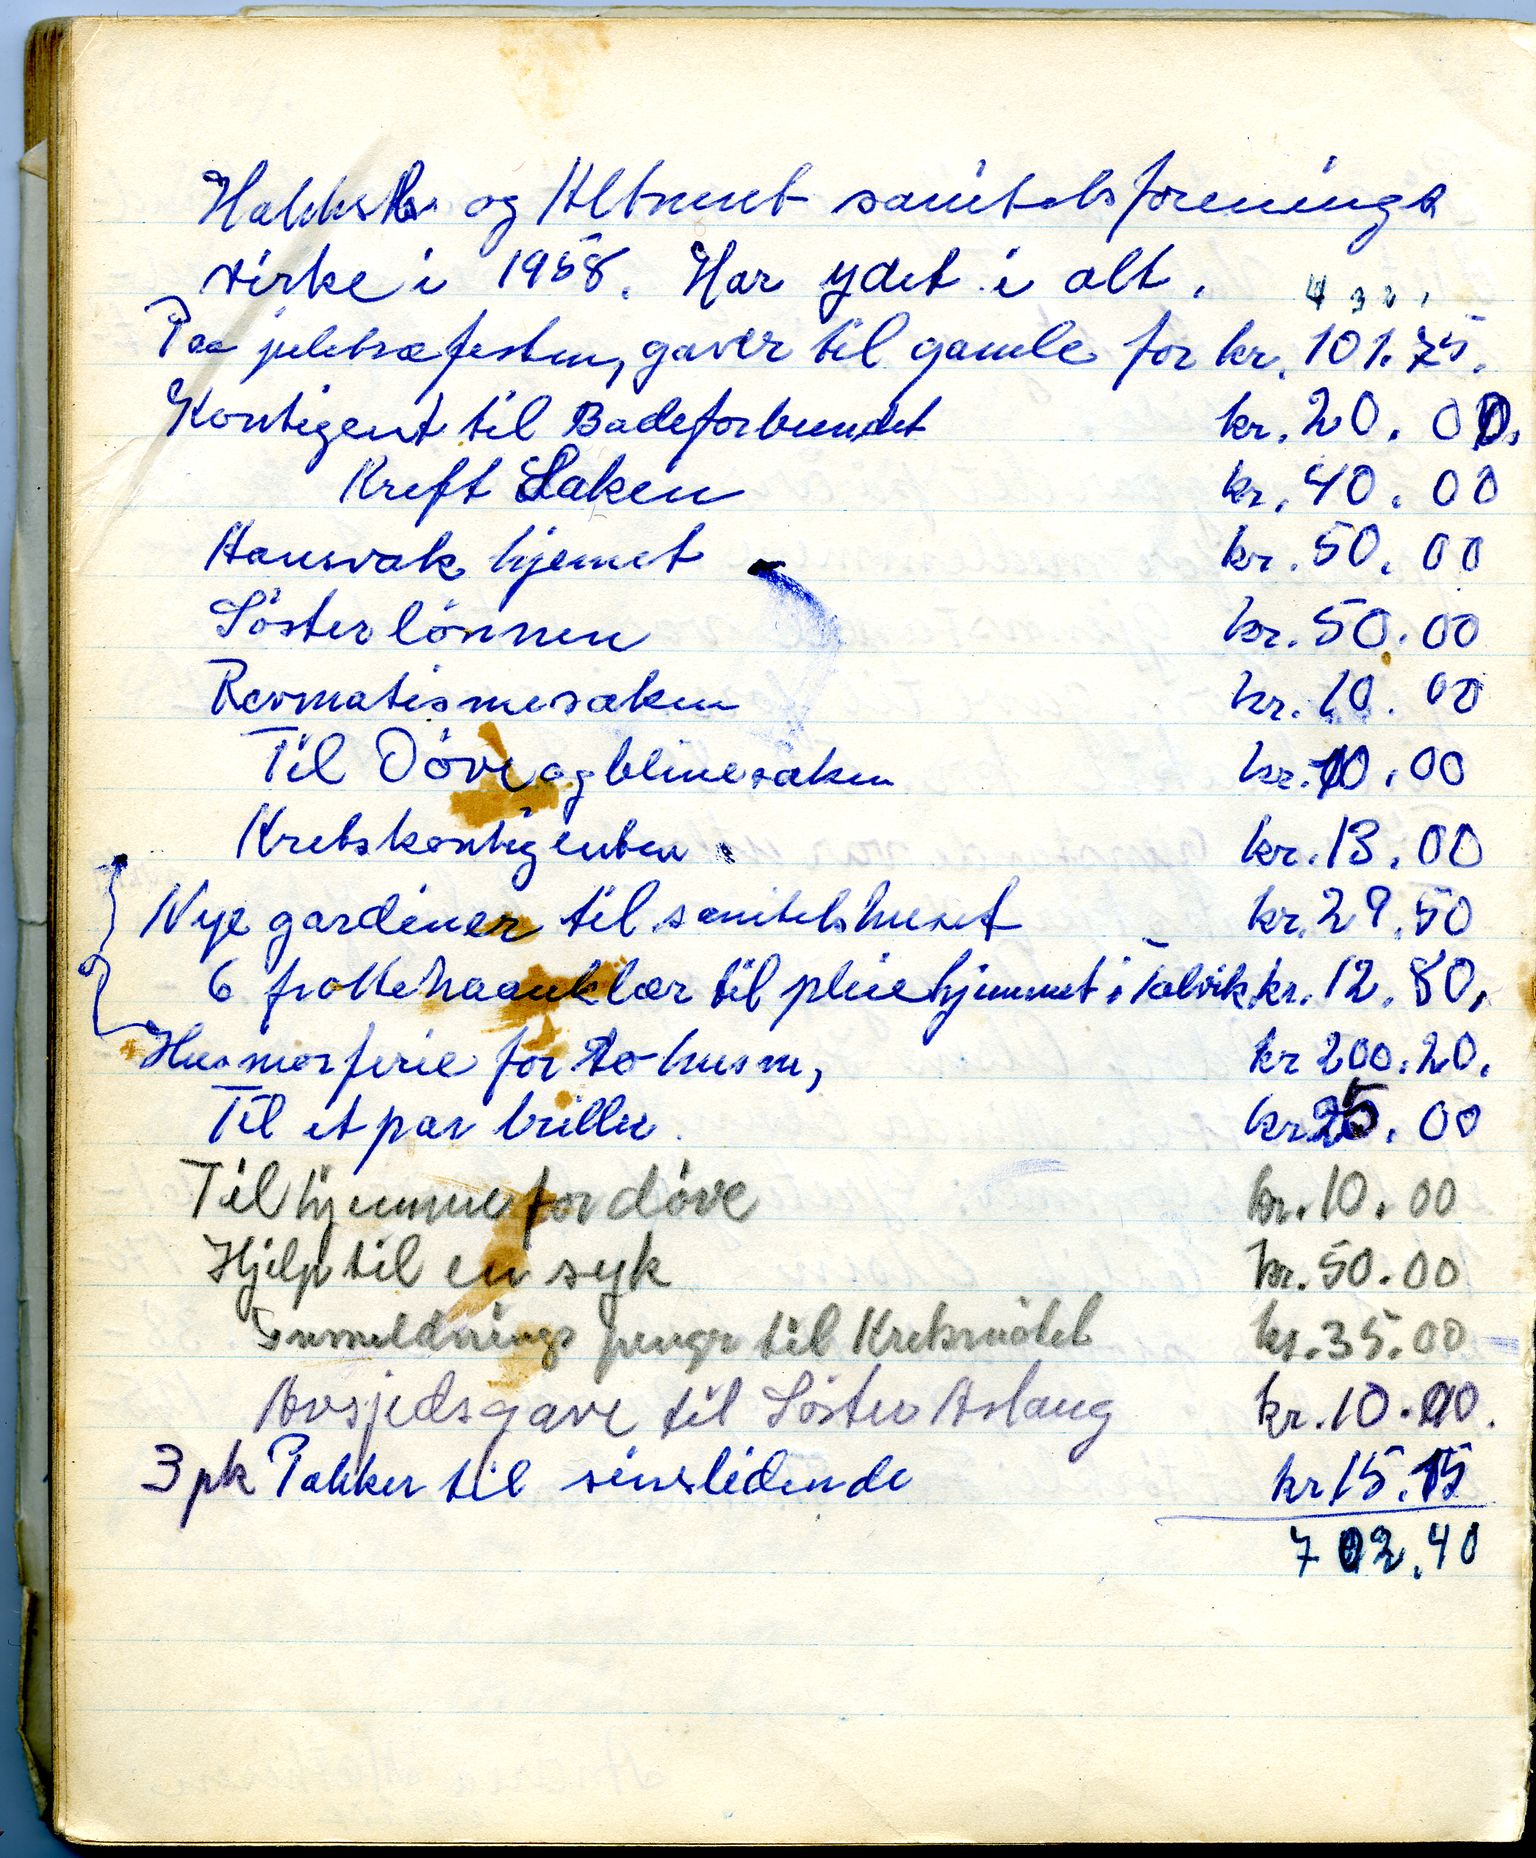 og Altneset sanitetsforenings
virke i 1958. Har ydet i alt.
4 3 2 1
Paa juletræfesten, gaver til gamle for kr. 101.75.
Kontigent til Badeforbundet kr. 20.00.
Kreft Saken kr. 40.00
Hansvak hjemet kr. 50.00
Søsterlønnen kr. 50.00
Revmatismesaken kr. 10.00
Til Døve og blinesaken kr. 10.00
Kretskontigenten. kr. 13.00
Nye gardiner til sanitetshuset kr. 29.50
6 frottehaanklær til pleiehjemmet i Talvik kr. 12.80.
Husmorferie for to husm, kr 200.20.
Til et par briller. kr 25.00
Til hjemme for døve kr. 10.00
Hjelp til en syk kr. 50.00
Innmeldnings penger til Kretsmøtet kr. 35.00
Avsjedsgave til Søster Aslaug kr. 10.00.
3 pk Pakker til sinslidende kr 15.15
702.40